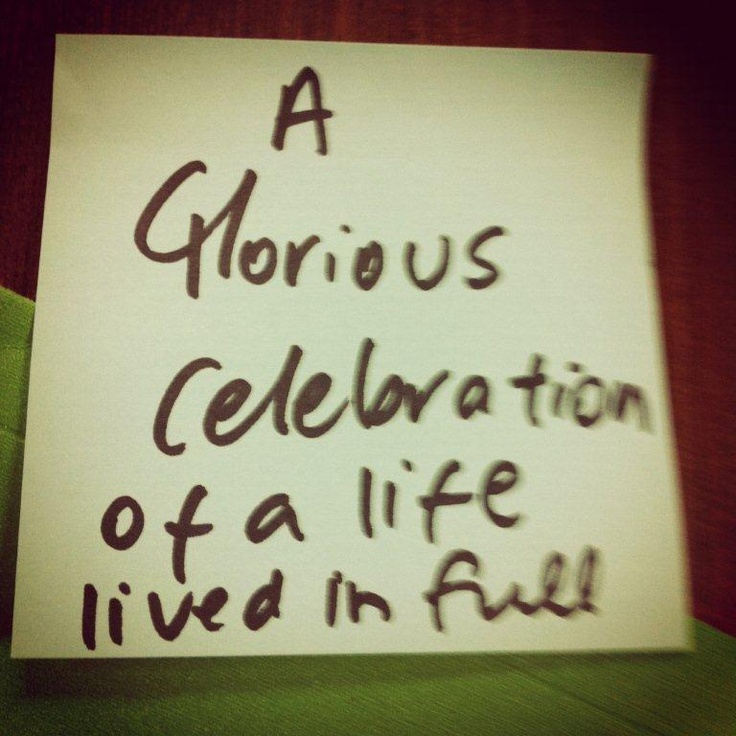 A
Glorious
Celebration
of a life
lived in full